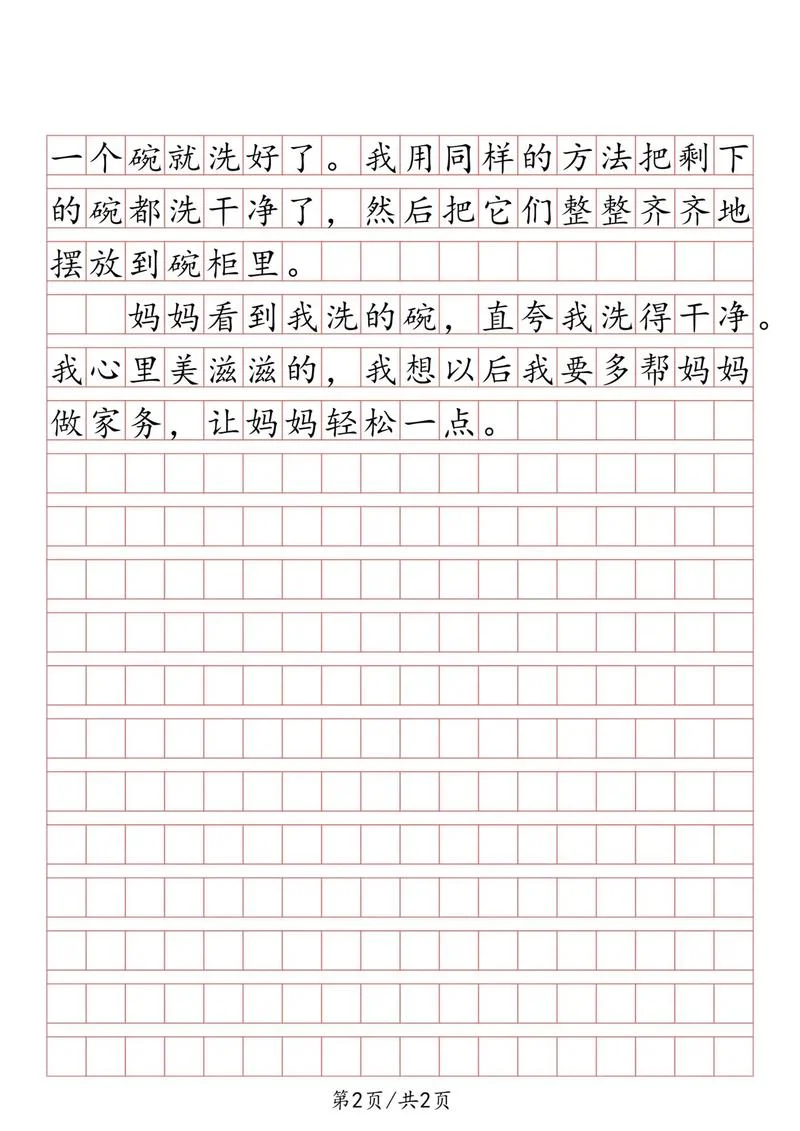 一个碗就洗好了。我用同样的方法把剩下
的碗都洗干净了，然后把它们整整齐齐地
摆放到碗柜里。
妈妈看到我洗的碗，直夸我洗得干净。
我心里美滋滋的，我想以后我要多帮妈妈
做家务，让妈妈轻松一点。
第2页/共2页